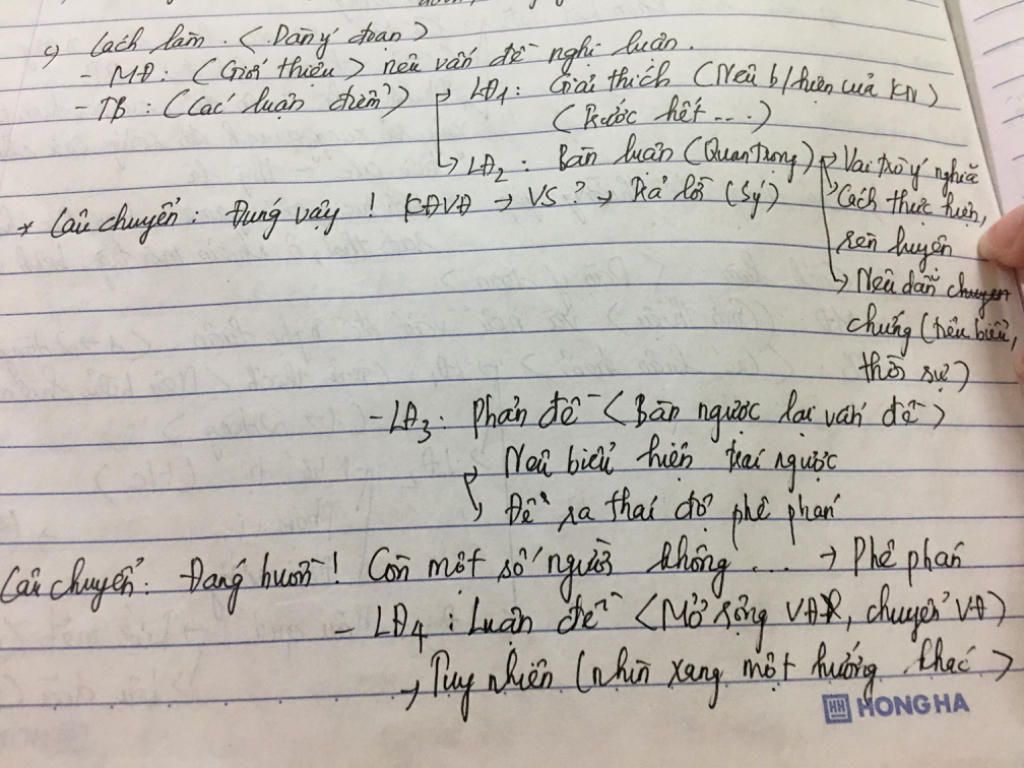 c) Cách làm. < Dàn ý đoạn >
- MĐ: (Giới thiệu) nêu vấn đề nghị luận.
- TB: (Các luận điểm) → LĐ1: Giải thích (Nêu b/hiện của KN)
(Trước hết ....)
→ LĐ2: Bàn luận (Quan trọng) → Vai trò ý nghĩa
→ Cách thực hiện,
rèn luyện
* Câu chuyển: Đúng vậy! KĐVĐ → VS? → Trả lời (Sý)
→ Nêu dẫn
chứng (tiêu biểu,
thời sự)
- LĐ3: Phản đề < Bàn ngược lại vấn đề >
→ Nêu biểu hiện trái ngược
→ Đề ra thái độ phê phán
Câu chuyển: Đáng buồn! Còn một số người không .... → Phê phán
- LĐ4: Luận đề < Mở rộng VĐ, chuyển VĐ >
→ Tuy nhiên (nhìn xang một hướng khác >
HONG HA